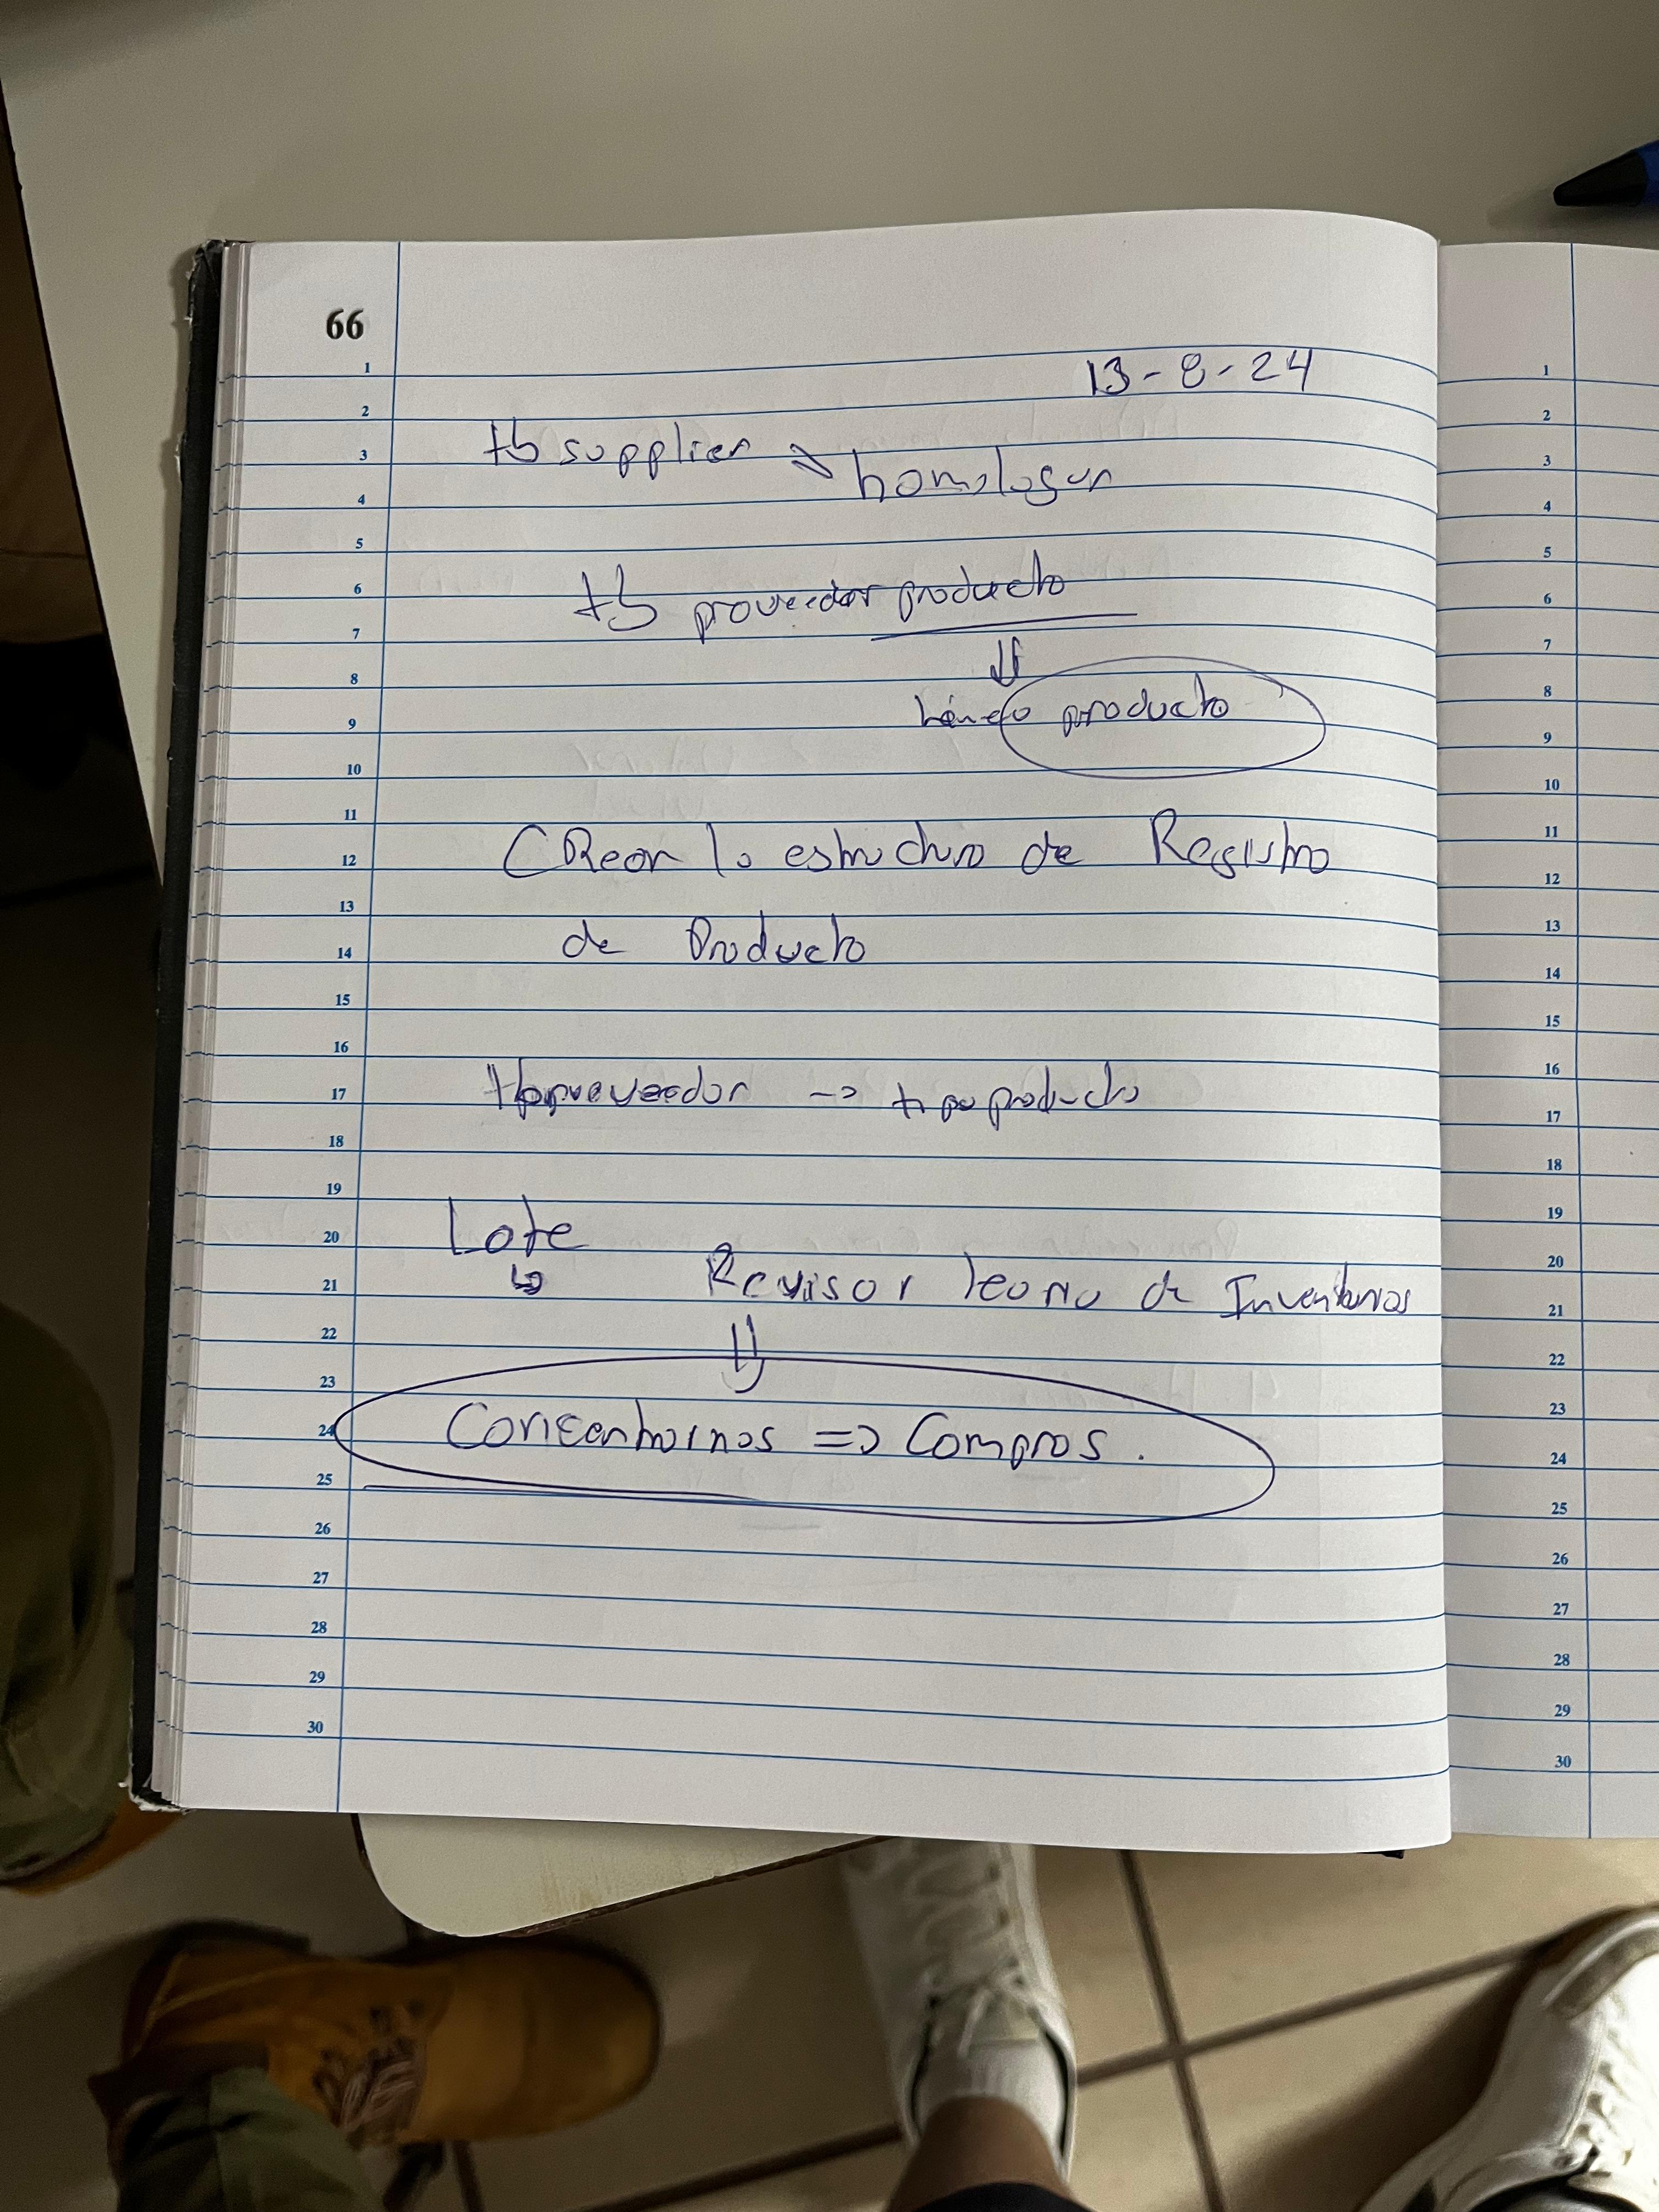 66
13-8-24
tb supplier → homologar
tb proveedor producto
⇓
producto
CRear la estructura de Registro
de Producto
tbproveedor -> tipoproducto
Lote
↳
Revisar teoria de Inventarios
⇓
=> Compras.
1
2
3
4
5
6
7
8
9
10
11
12
13
14
15
16
17
18
19
20
21
22
23
24
25
26
27
28
29
30
1
2
3
4
5
6
7
8
9
10
11
12
13
14
15
16
17
18
19
20
21
22
23
24
25
26
27
28
29
30